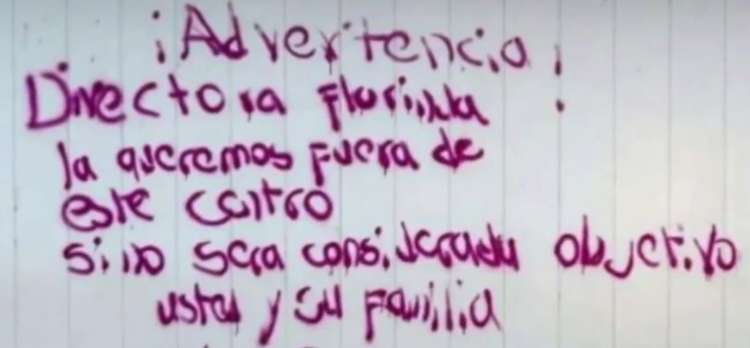 ¡Advertencia!
Directora Florinda
la queremos fuera de
este centro
si no sera considerada objectivo
usted y su familia